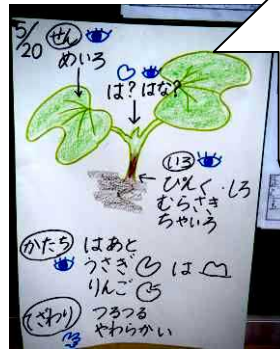 5/20
せん
めいろ
は？はな？
いろ
ぴんく・しろ
むらさき
ちゃいろ
かたち
はあと
うさぎ は
りんご
てざわり
つるつる
やわらかい